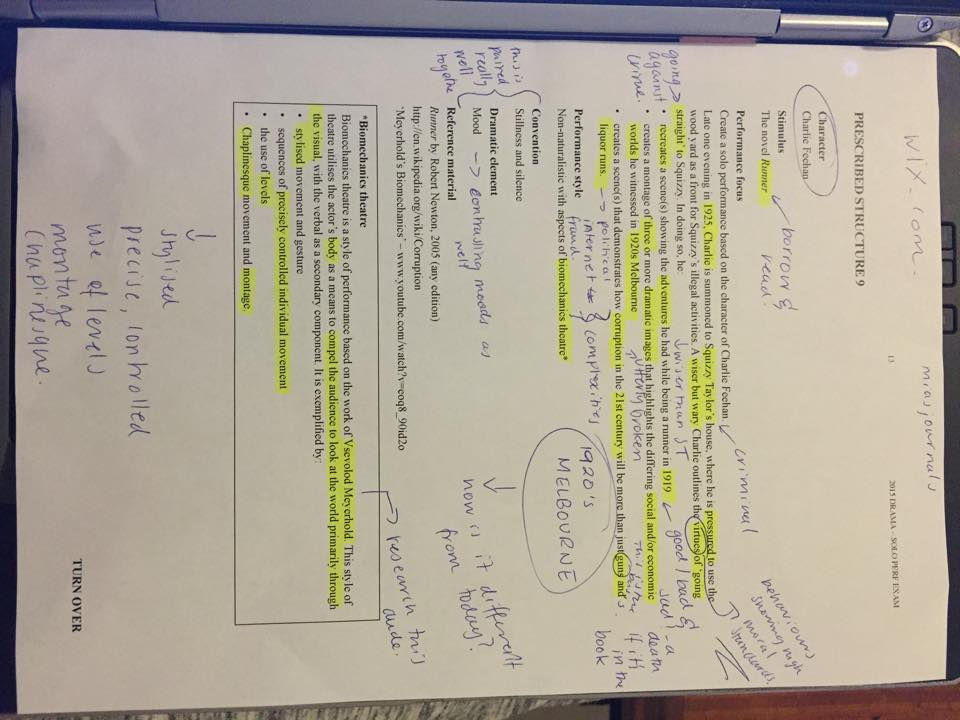 wix.com.
mrasjournals
13
2015 DRAMA – SOLO PERF EXAM
PRESCRIBED STRUCTURE 9
Character
Charlie Feehan
Stimulus
The novel Runner
borrow &
read!
behaviours
showing high
moral
standards.
Performance focus
Create a solo performance based on the character of Charlie Feehan.
criminal
Late one evening in 1925, Charlie is summoned to Squizzy Taylor's house, where he is pressured to use the
wood yard as a front for Squizzy's illegal activities. A wiser but wary Charlie outlines the virtues of 'going
straight' to Squizzy. In doing so, he:
going
against
crime.
wiser than ST
• recreates a scene(s) showing the adventures he had while being a runner in 1919
good/bad &
sad! - a
death
if it's
in the
book
• creates a montage of three or more dramatic images that highlights the differing social and/or economic
worlds he witnessed in 1920s Melbourne
utterly broken
• creates a scene(s) that demonstrates how corruption in the 21st century will be more than just guns and
liquor runs.
political
internet
fraud
& complexities
Performance style
Non-naturalistic with aspects of biomechanics theatre*
1920's
MELBOURNE
how is it different
from today?
Convention
Stillness and silence
this is
paired
really
well
together
Dramatic element
Mood
contrasting moods as
well
Reference material
Runner by Robert Newton, 2005 (any edition)
http://en.wikipedia.org/wiki/Corruption
'Meyerhold's Biomechanics' – www.youtube.com/watch?v=eoq8_90id2o
research this
dude.
*Biomechanics theatre
Biomechanics theatre is a style of performance based on the work of Vsevolod Meyerhold. This style of
theatre utilises the actor's body as a means to compel the audience to look at the world primarily through
the visual, with the verbal as a secondary component. It is exemplified by:
• stylised movement and gesture
• sequences of precisely controlled individual movement
• the use of levels
• Chaplinesque movement and montage.
stylised
precise, controlled
use of levels
montage
Chaplinesque.
TURN OVER